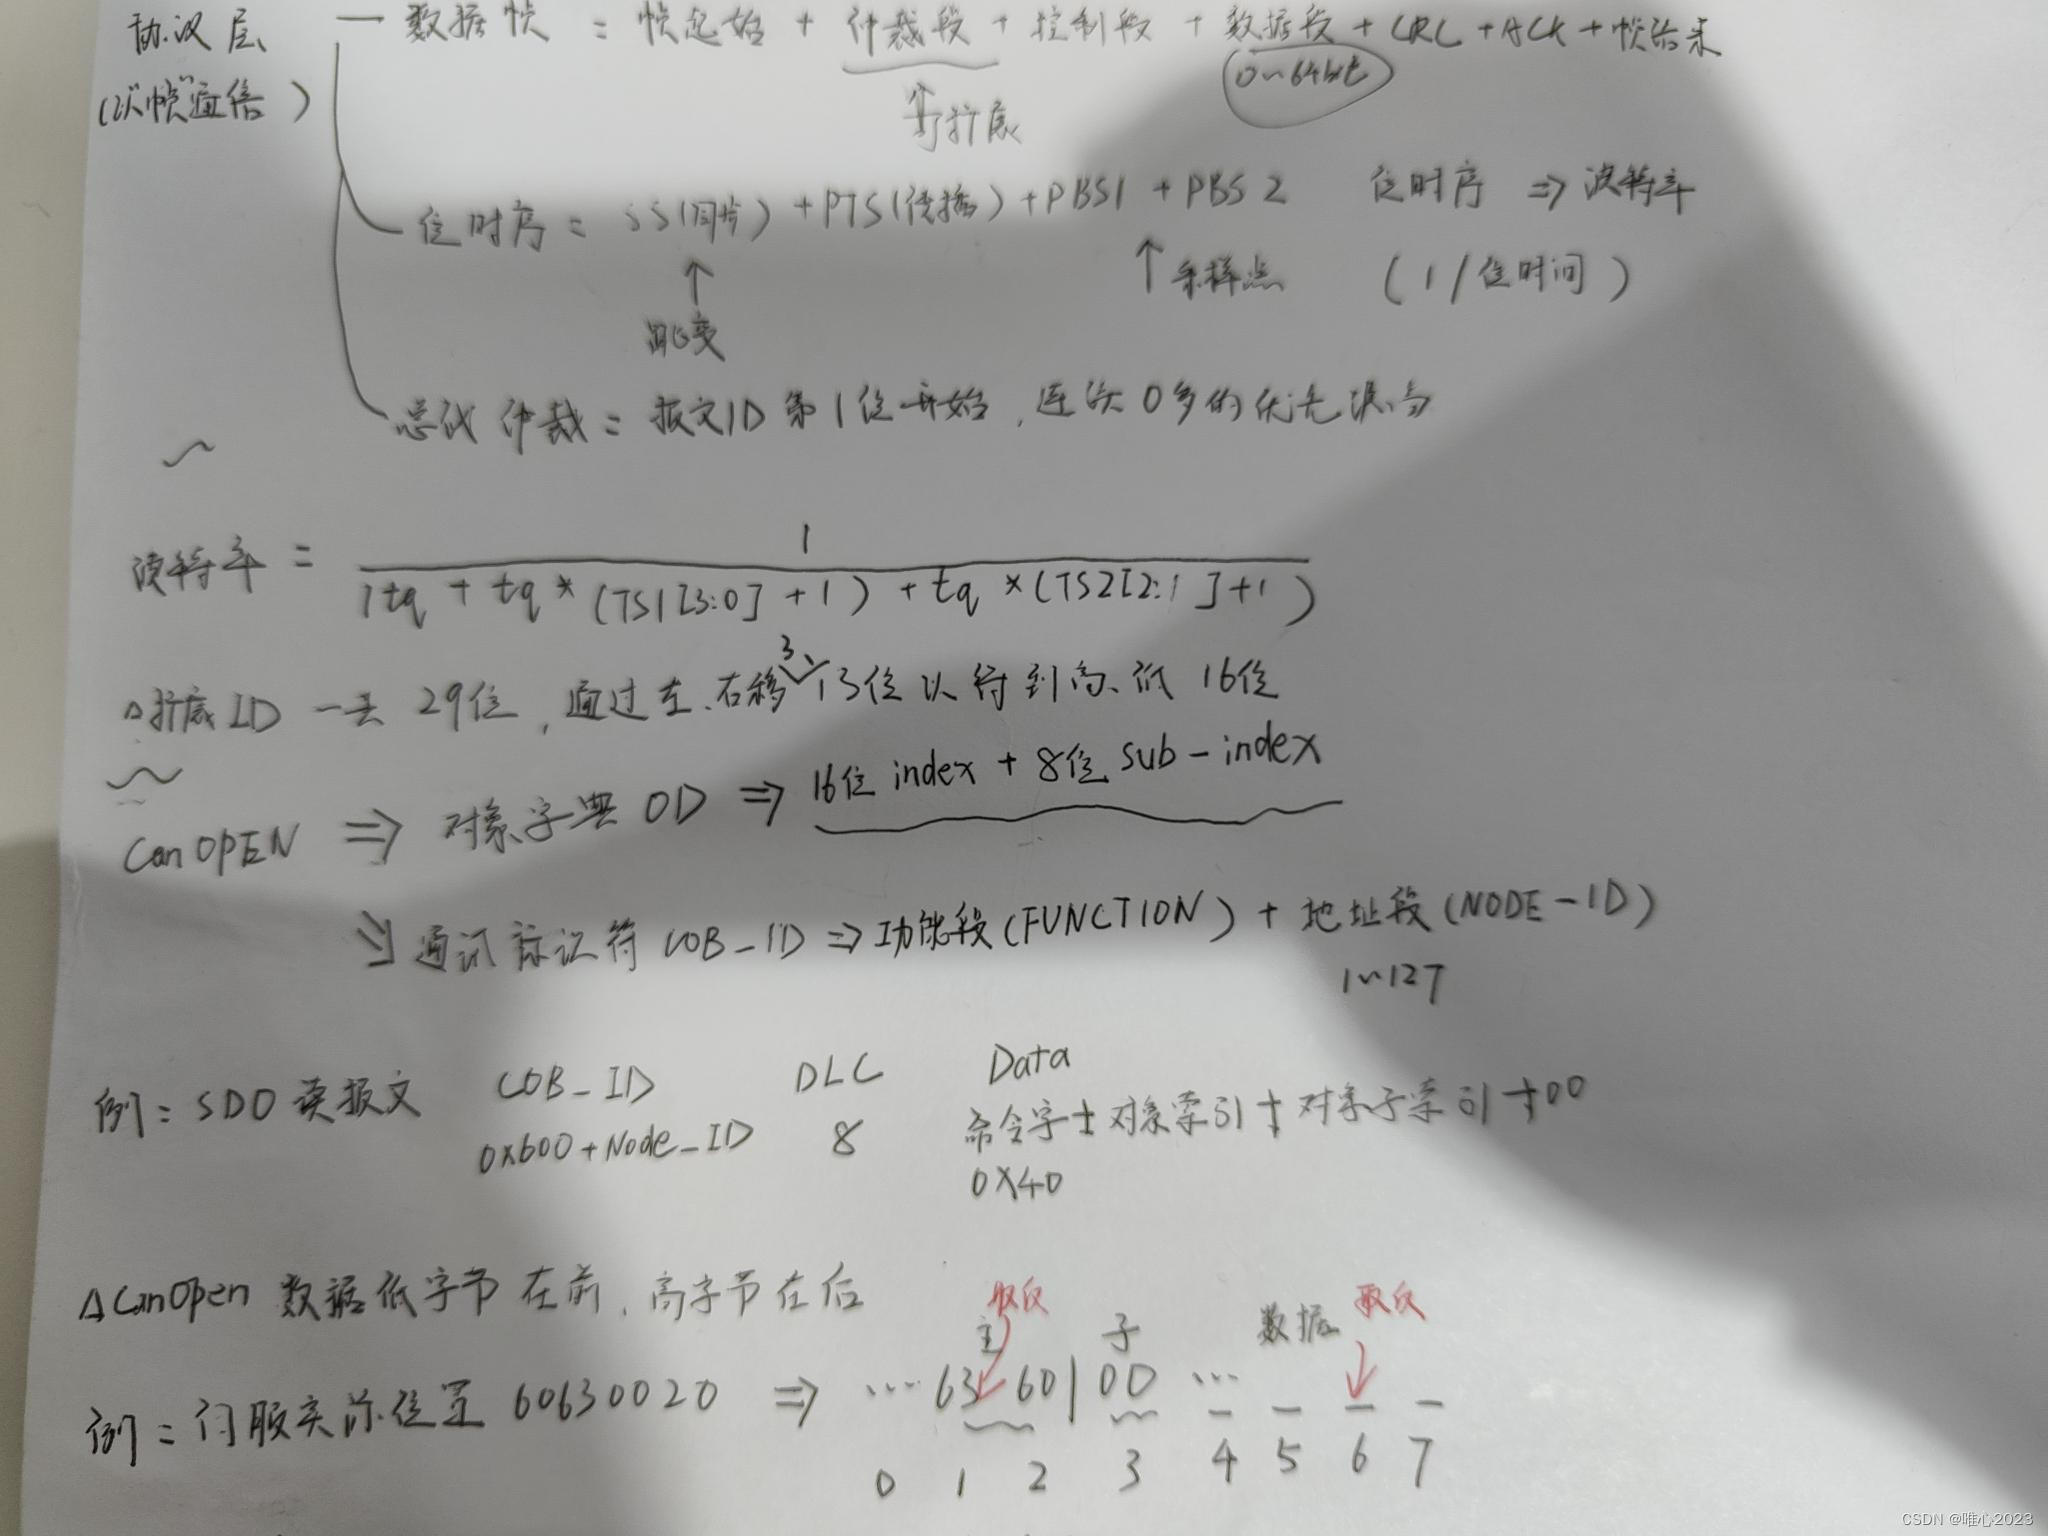 协议层 — 数据帧 = 帧起始 + 仲裁段 + 控制段 + 数据段 + CRC + ACK + 帧结束
(以"帧"通信)
0~64bit
可扩展
位时序 = SS(同步) + PTS(传播) + PBS1 + PBS2 位时序 => 波特率
↑ ↑采样点 (1/位时间)
跳变
总线仲裁 = 报文ID第1位开始, 连续0多的优先级高
波特率 = 1
1tq + tq * (TS1[3:0] + 1) + tq × (TS2[2:1] + 1)
△扩展ID 一共 29位, 通过左、右移3、13位以得到高、低 16位
CanOPEN => 对象字典 OD => 16位 index + 8位 sub-index
通讯标识符 COB_ID => 功能段(FUNCTION) + 地址段(NODE-ID)
1~127
例: SDO 读报文 COB_ID DLC Data
0x600+Node_ID 8 命令字+对象索引+对象子索引+00
0x40
△CanOpen 数据低字节在前, 高字节在后
取反 主 子 数据 取反
例: 伺服实际位置 60630020 => ... 63 60|00 ... _ _ _ _
0 1 2 3 4 5 6 7
CSDN @唯心2023